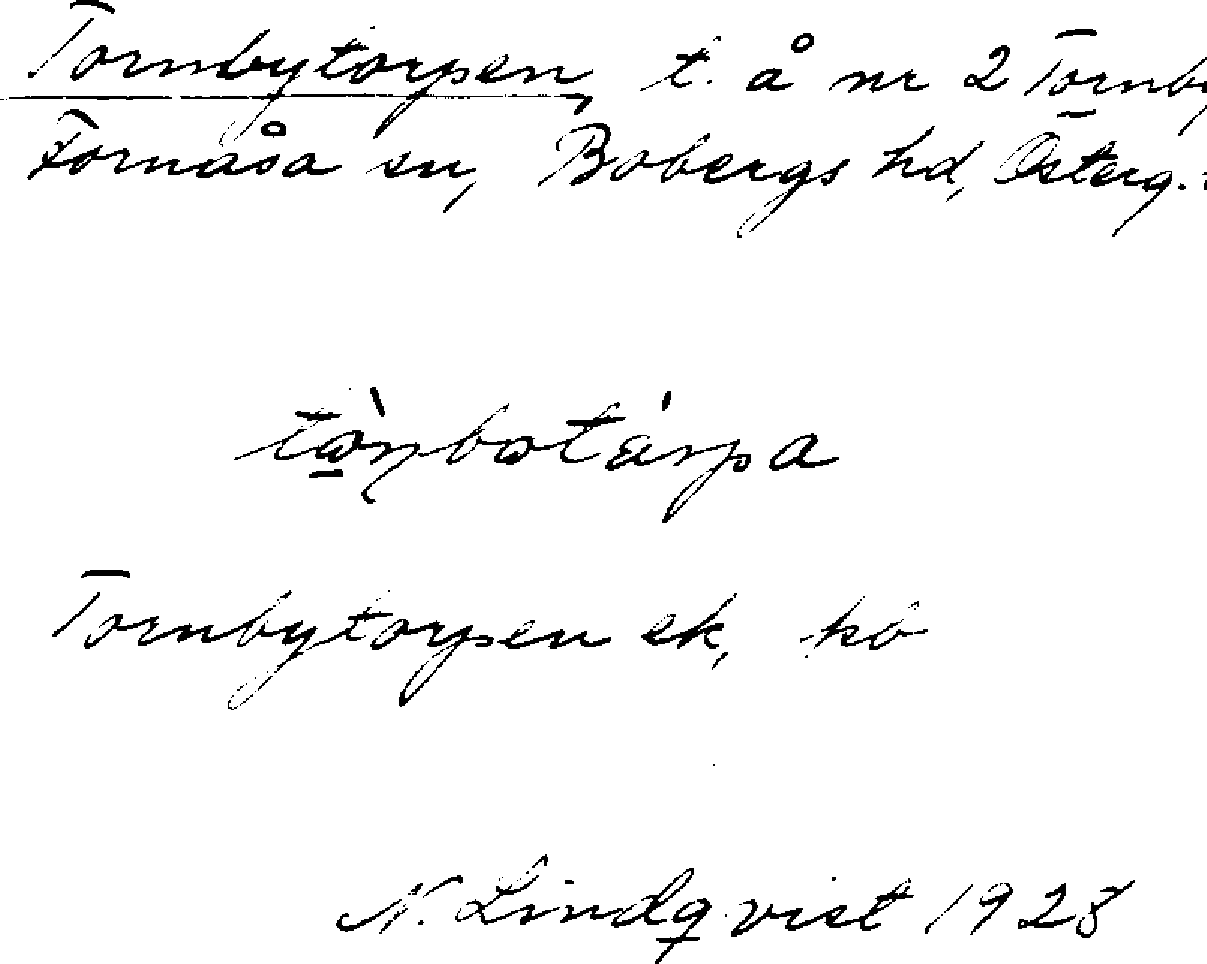 Tornbytorpen, t. å nr 2 Tornby
Fornåsa sn, Bobergs hd, Österg.
Tornbytorpen ek, kö
N. Lindqvist 1928